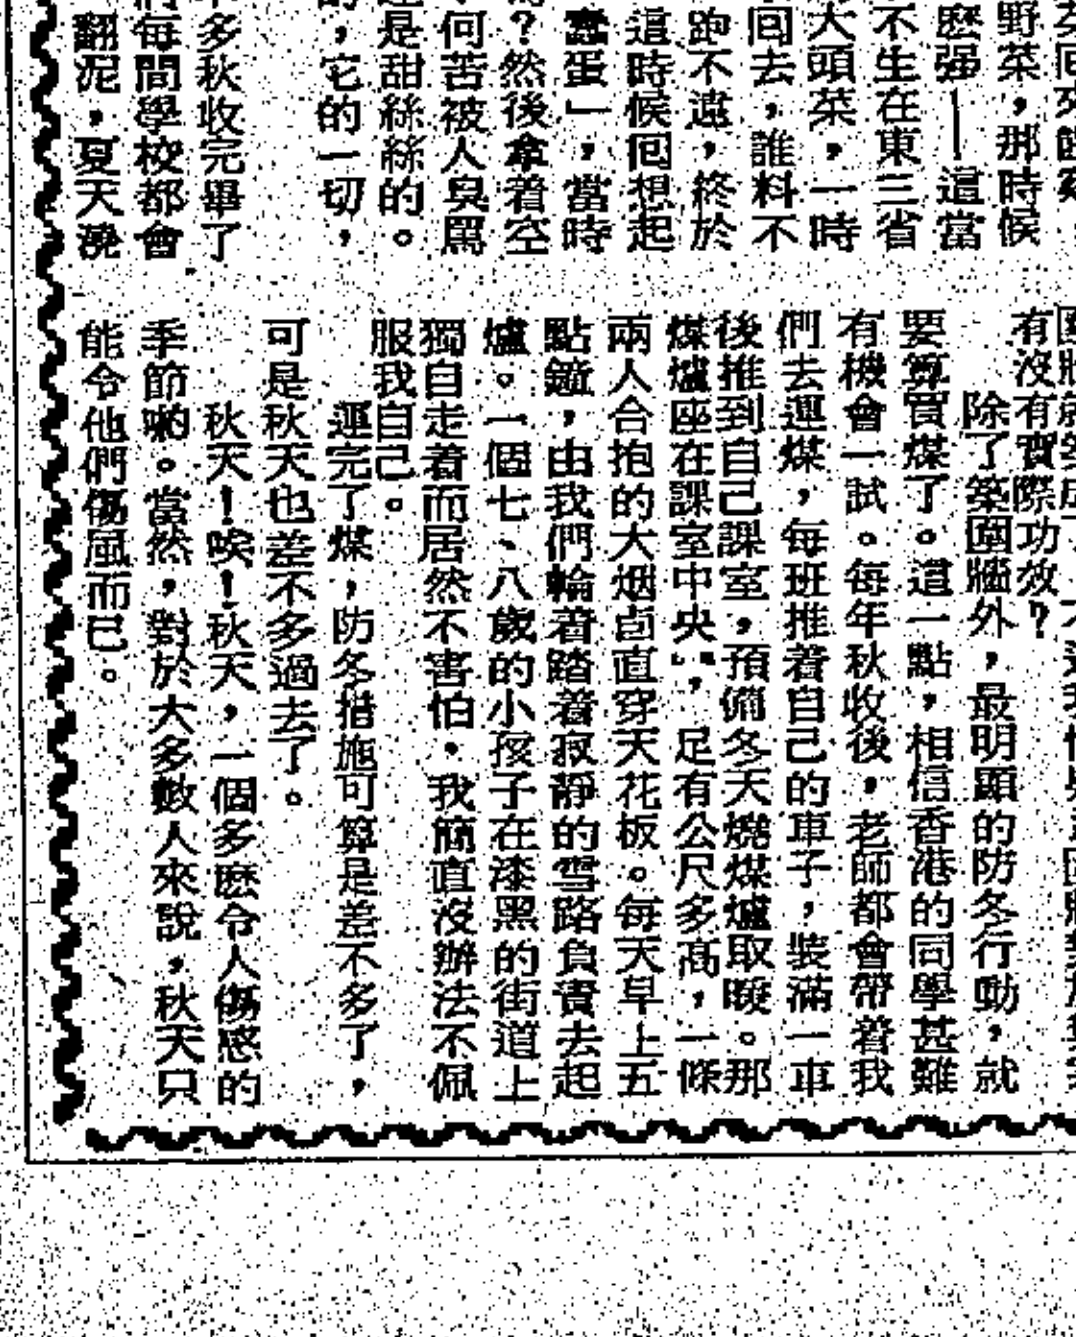 野菜，那時候
麽强——這當
不生在東三省
大頭菜，一時
回去，誰料不
跑不遠，終於
這時候回想起
蛋」，當時
？然後拿着空
何苦被人臭罵
是甜絲絲的。
，它的一切，
多秋收完畢了
們每間學校都會
翻泥，夏天澆
有沒有實際功效？
除了築圍牆外，最明顯的防冬行動，就
要算買煤了。這一點，相信香港的同學甚難
有機會一試。每年秋收後，老師都會帶着我
們去運煤，每班推着自己的車子，裝滿一車
後推到自己課室，預備冬天燒煤爐取暖。那
煤爐座在課室中央，足有公尺多高，一條
兩人合抱的大烟囱直穿天花板。每天早上五
點鐘，由我們輪着踏着寂靜的雪路負責去起
爐。一個七、八歲的小孩子在漆黑的街道上
獨自走着而居然不害怕，我簡直沒辦法不佩
服我自己。
運完了煤，防冬措施可算是差不多了，
可是秋天也差不多過去了。
秋天！唉！秋天，一個多麽令人傷感的
季節喲。當然，對於大多數人來說，秋天只
能令他們傷風而已。